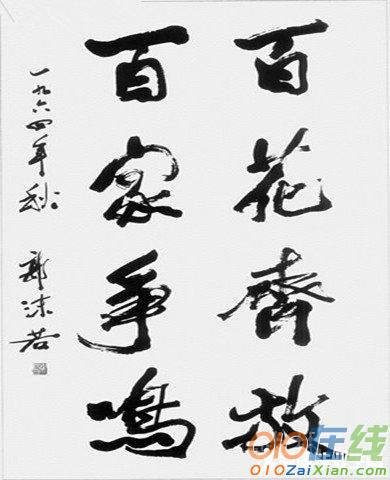 百花齊放
百家争鳴
一九六四年秋
郭沫若
010在线
010ZaiXian.com